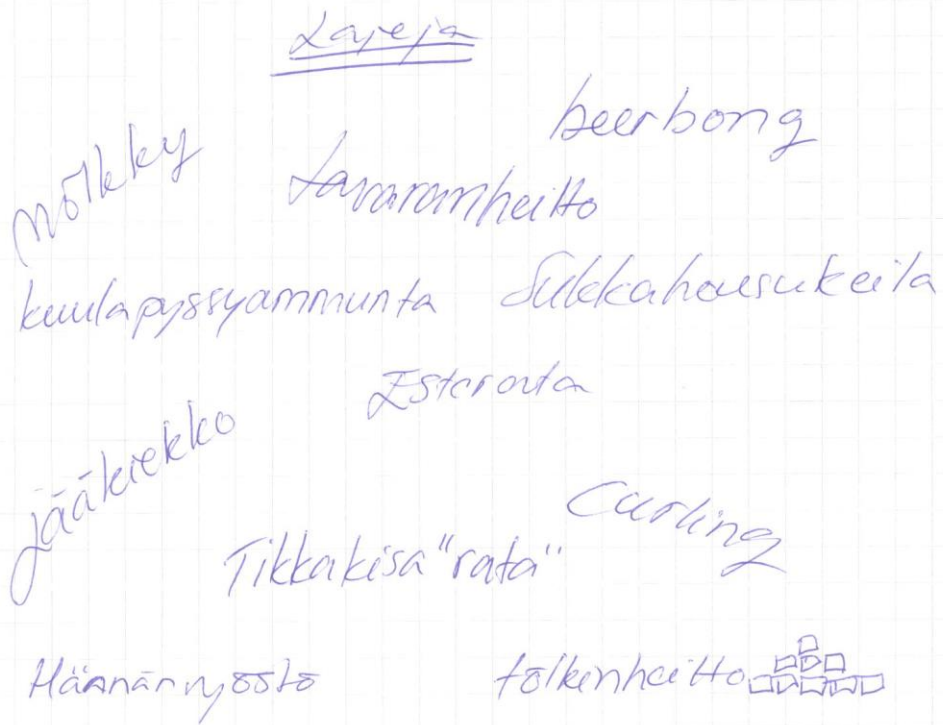 Lajeja
beerbong
mölkky
Tavaranheitto
kuulapyssyammunta Sukkahousukeila
Esterata
jääkiekko
Curling
Tikkakisa "rata"
Hännänryöstö tölkinheitto